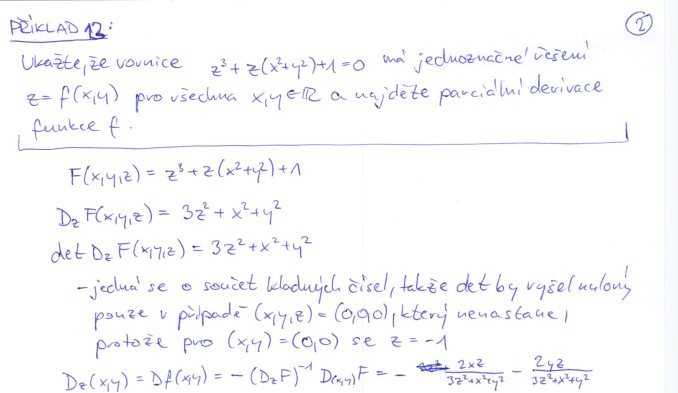 PŘÍKLAD 12:
②
Ukažte, že rovnice z³ + z(x²+y²)+1=0 má jednoznačné řešení
z = f(x,y) pro všechna x,y ∈ ℝ a najděte parciální derivace
funkce f.
F(x,y,z) = z³ + z(x²+y²)+1
D_z F(x,y,z) = 3z² + x² + y²
det D_z F(x,y,z) = 3z² + x² + y²
- jedná se o součet kladných čísel, takže det by vyšel nulový
pouze v případě (x,y,z) = (0,0,0), který nenastane,
protože pro (x,y) = (0,0) se z = -1
D_z(x,y) = Df(x,y) = -(D_z F)⁻¹ D_(x,y) F = - 2xz/(3z²+x²+y²) - 2yz/(3z²+x²+y²)